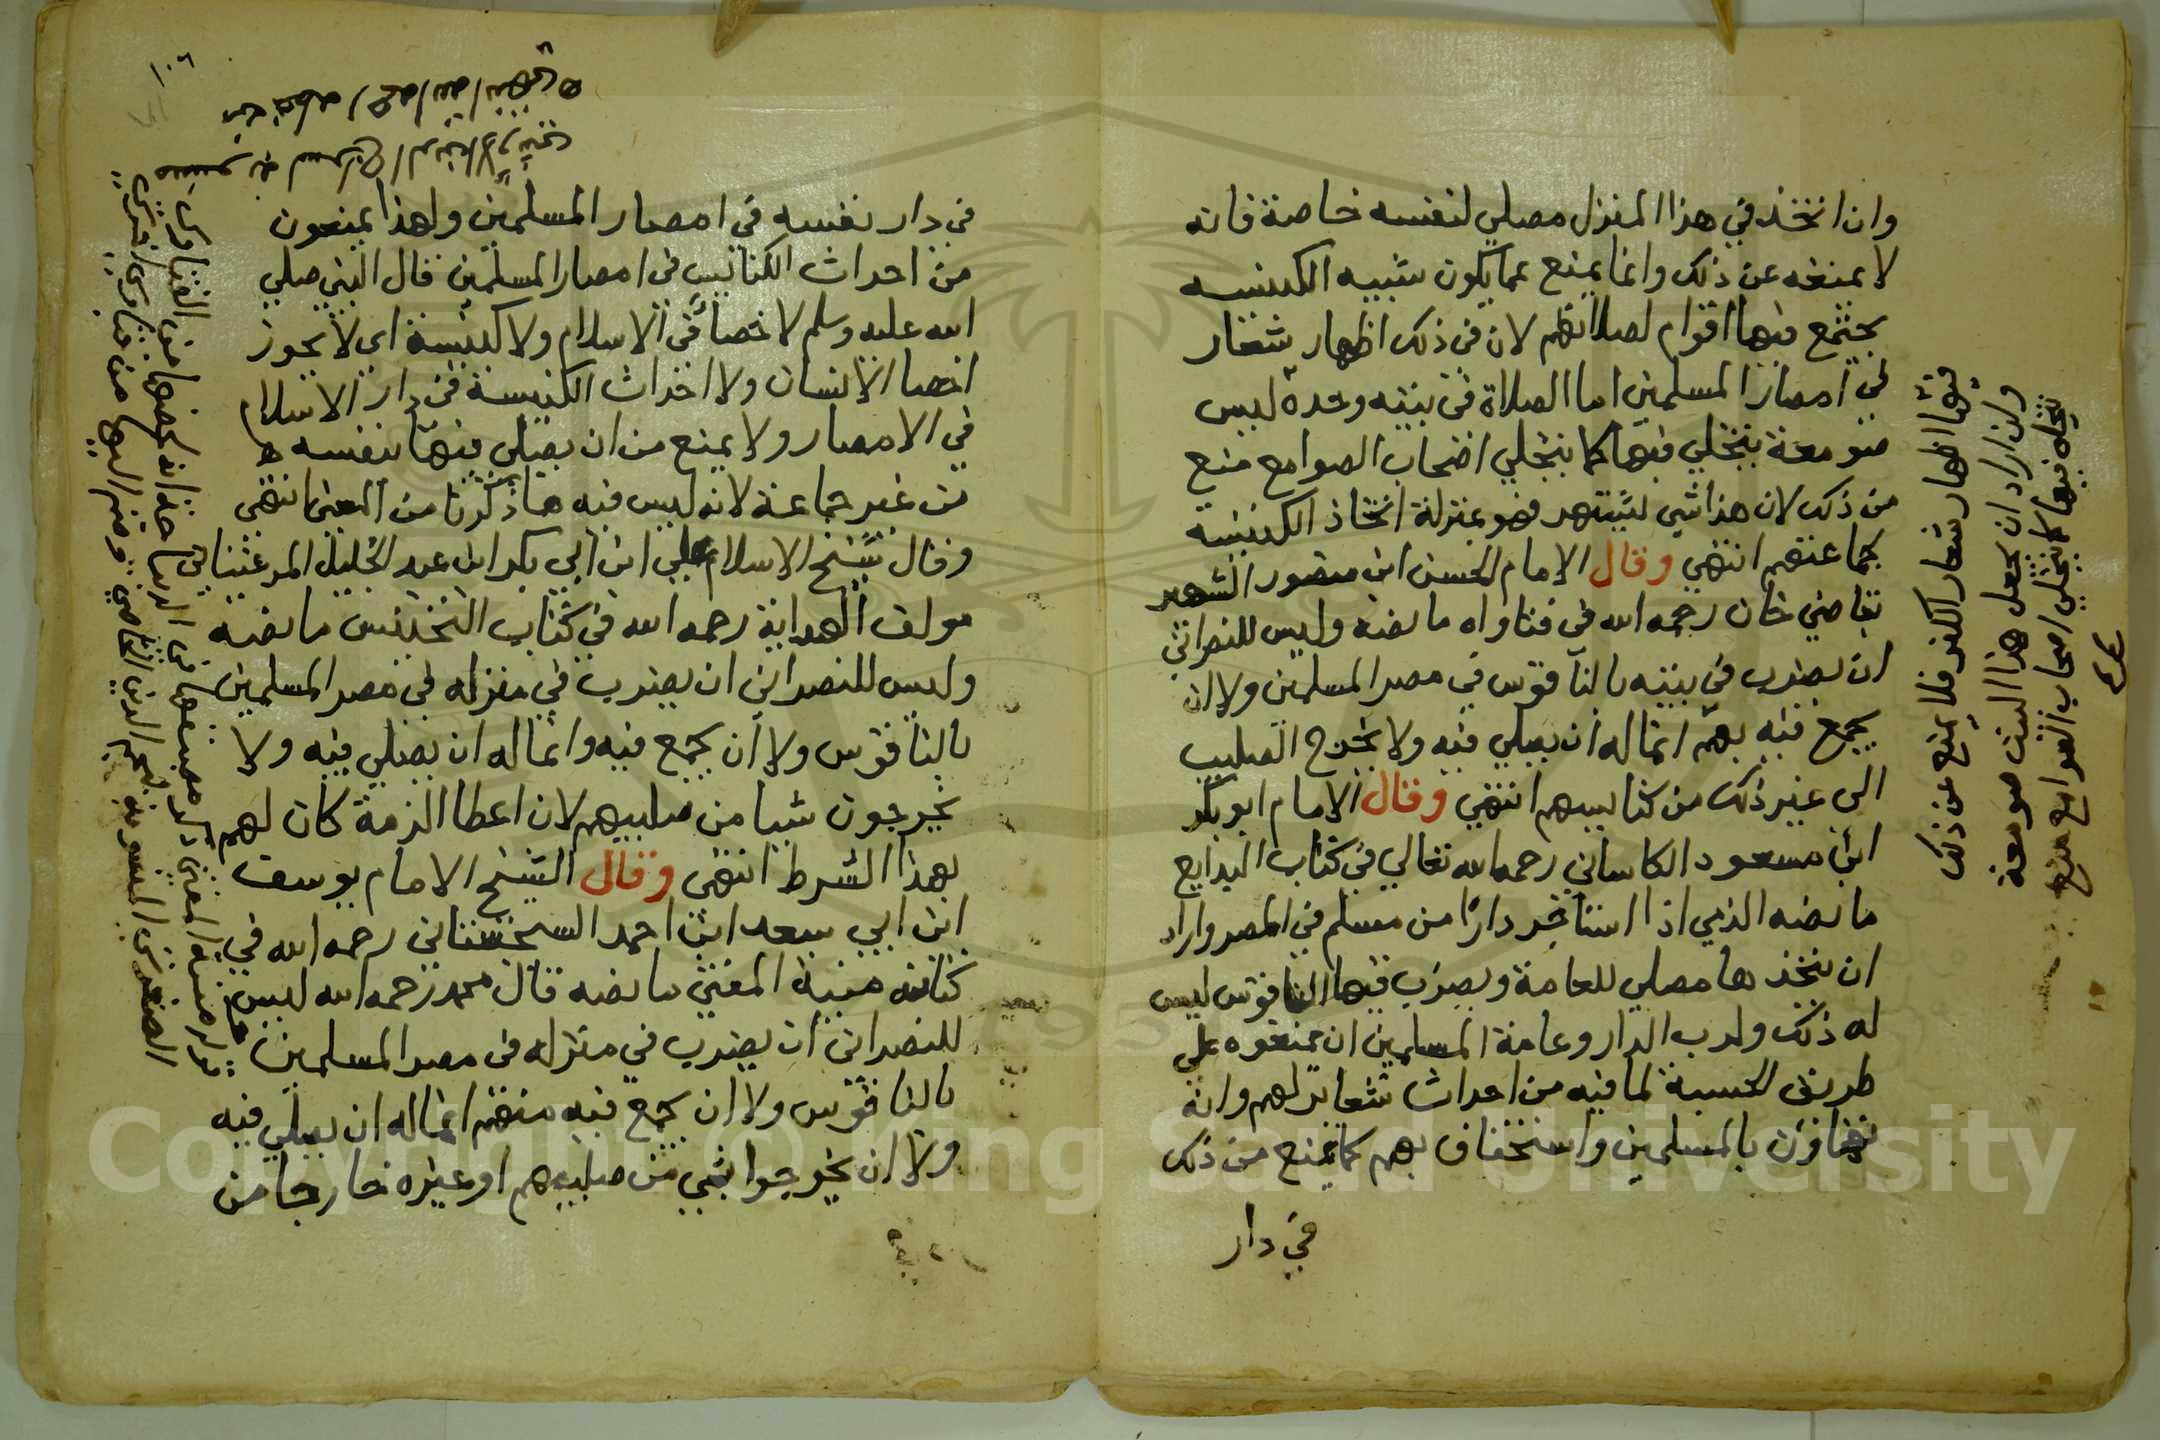 وان اتخذ في هذا المنزل مصلي لنفسه خاصة فانه
لا يمنعه عن ذلك وانما يمنع عما يكون شبيه الكنيسه
يجتمع فيها اقوام لصلاتهم لان في ذلك اظهار شعار
في امصار المسلمين اما الصلاة في بيته وحده ليس
فيها اظهار شعار الكفر فلا يمنع عن ذلك
ولان اراد ان يجعل هذا البيت صومعة
يتخلى فيها كما يتخلى اصحاب الصوامع منع
صومعة يتخلي فيها كما يتخلي اصحاب الصوامع منع
من ذلك لان هذا شي يشتهر فهو بمنزلة اتخاذ الكنيسه
لجماعتهم انتهي وقال الامام الحسن ابن منصور الشهير
بقاضي خان رحمه الله في فتاواه ما نصه وليس للنصراني
ان يضرب في بيته بالناقوس في مصر المسلمين ولا ان
يجمع فيه بهم انما له ان يصلي فيه ولا يخرج الصليب
الى غير ذلك من كنايسهم انتهي وقال الامام ابو بكر
ابن مسعود الكاساني رحمه الله تعالي في كتاب البدايع
ما نصه الذمي اذا استاجر دارًا من مسلم في المصر واراد
ان يتخذها مصلي للعامة ويضرب فيها الناقوس ليس
له ذلك ولرب الدار وعامة المسلمين ان يمنعوه علي
طريق الحسبة لما فيه من احداث شعاير لهم وانه
تهاون بالمسلمين واستخفاف بهم كما يمنع من ذلك
في دار
١٠٦
في دار نفسه في امصار المسلمين ولهذا يمنعون
من احداث الكنائس في امصار المسلمين قال النبي صلي
الله عليه وسلم لا خصا في الاسلام ولا كنيسة اي لا يجوز
اخصا الانسان ولا احداث الكنيسة في دار الاسلام
في الامصار ولا يمنع من ان يصلي فيها بنفسه
من غير جماعة لانه ليس فيه ما ذكرنا من المعنى انتهي
وقال شيخ الاسلام علي ابن ابي بكر ابن عبد الجليل المرغيناني
مولف الهداية رحمه الله في كتاب التجنيس ما نصه
وليس للنصراني ان يضرب في منزله في مصر المسلمين
بالناقوس ولا ان يجمع فيه وانما له ان يصلي فيه ولا
يخرجون شيا من صليبهم لان اعطا الذمة كان لهم
بهذا الشرط انتهى وقال الشيخ الامام يوسف
ابن ابي سعد ابن احمد السجستاني رحمه الله في
كتابه منية المفتي ما نصه قال محمد رحمه الله ليس
للنصراني ان يضرب في منزله في مصر المسلمين
بالناقوس ولا ان يجمع فيه منهم انما له ان يصلي فيه
ولا ان يخرجوا بشي من صليبهم او غيره خارجا من
Copyright © King Saud University